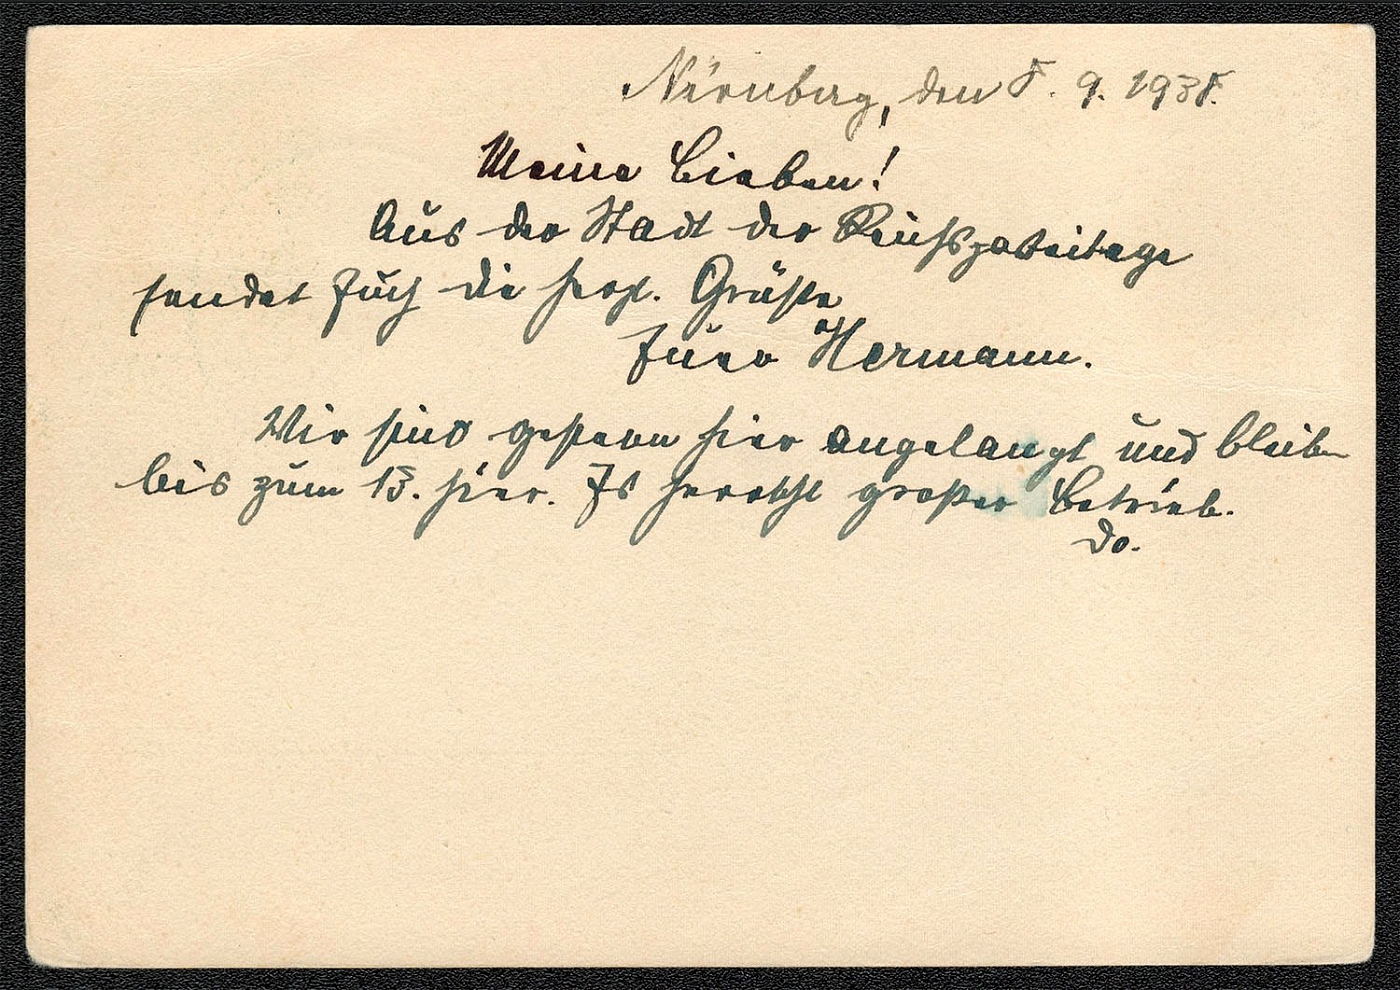 Nürnberg, den 8. 9. 1938.
Meine Lieben!
Aus der Stadt der Reichsparteitage
sendet Euch die herzl. Grüße
Euer Hermann.
Wir sind gestern hier angelangt und bleiben
bis zum 13. hier. Es herrscht großer Betrieb.
Do.